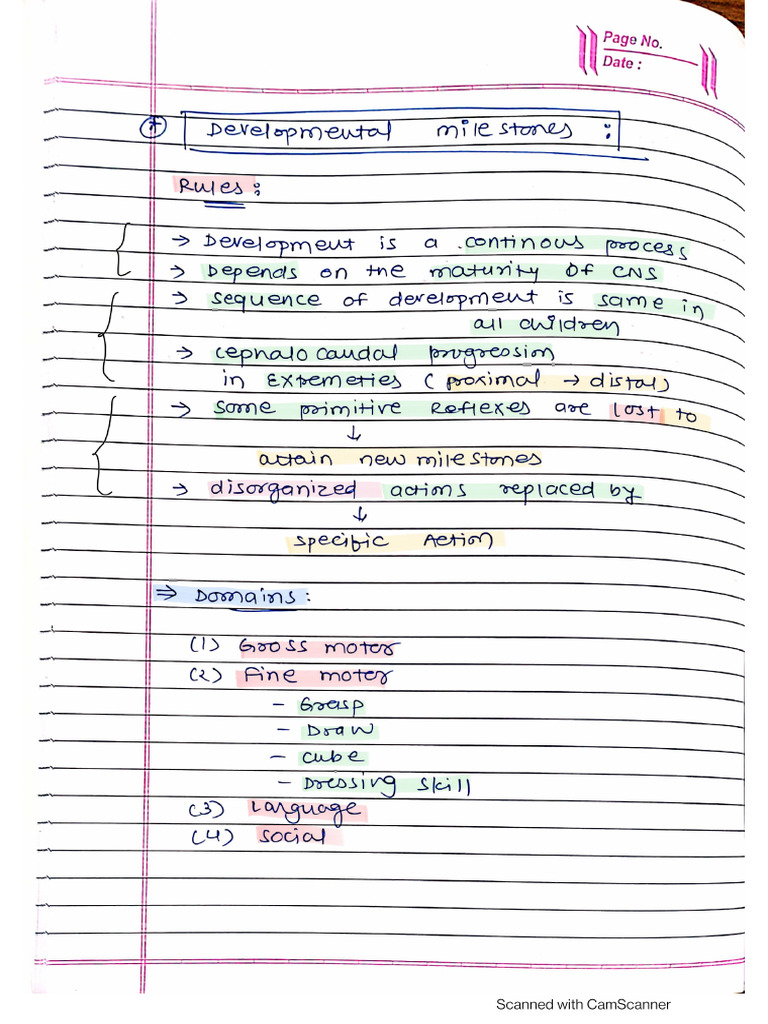 Page No.
Date :
* Developmental milestones :
Rules :
→ Development is a continous process
→ Depends on the maturity of CNS
→ sequence of development is same in
all children
→ cephalo caudal progression
in Extremeties ( proximal → distal)
→ some primitive Reflexes are lost to
↓
attain new milestones
→ disorganized actions replaced by
↓
specific Action
⇒ Domains :
(1) Gross motor
(2) Fine motor
- Grasp
- Draw
- cube
- Dressing skill
(3) Language
(4) social
Scanned with CamScanner